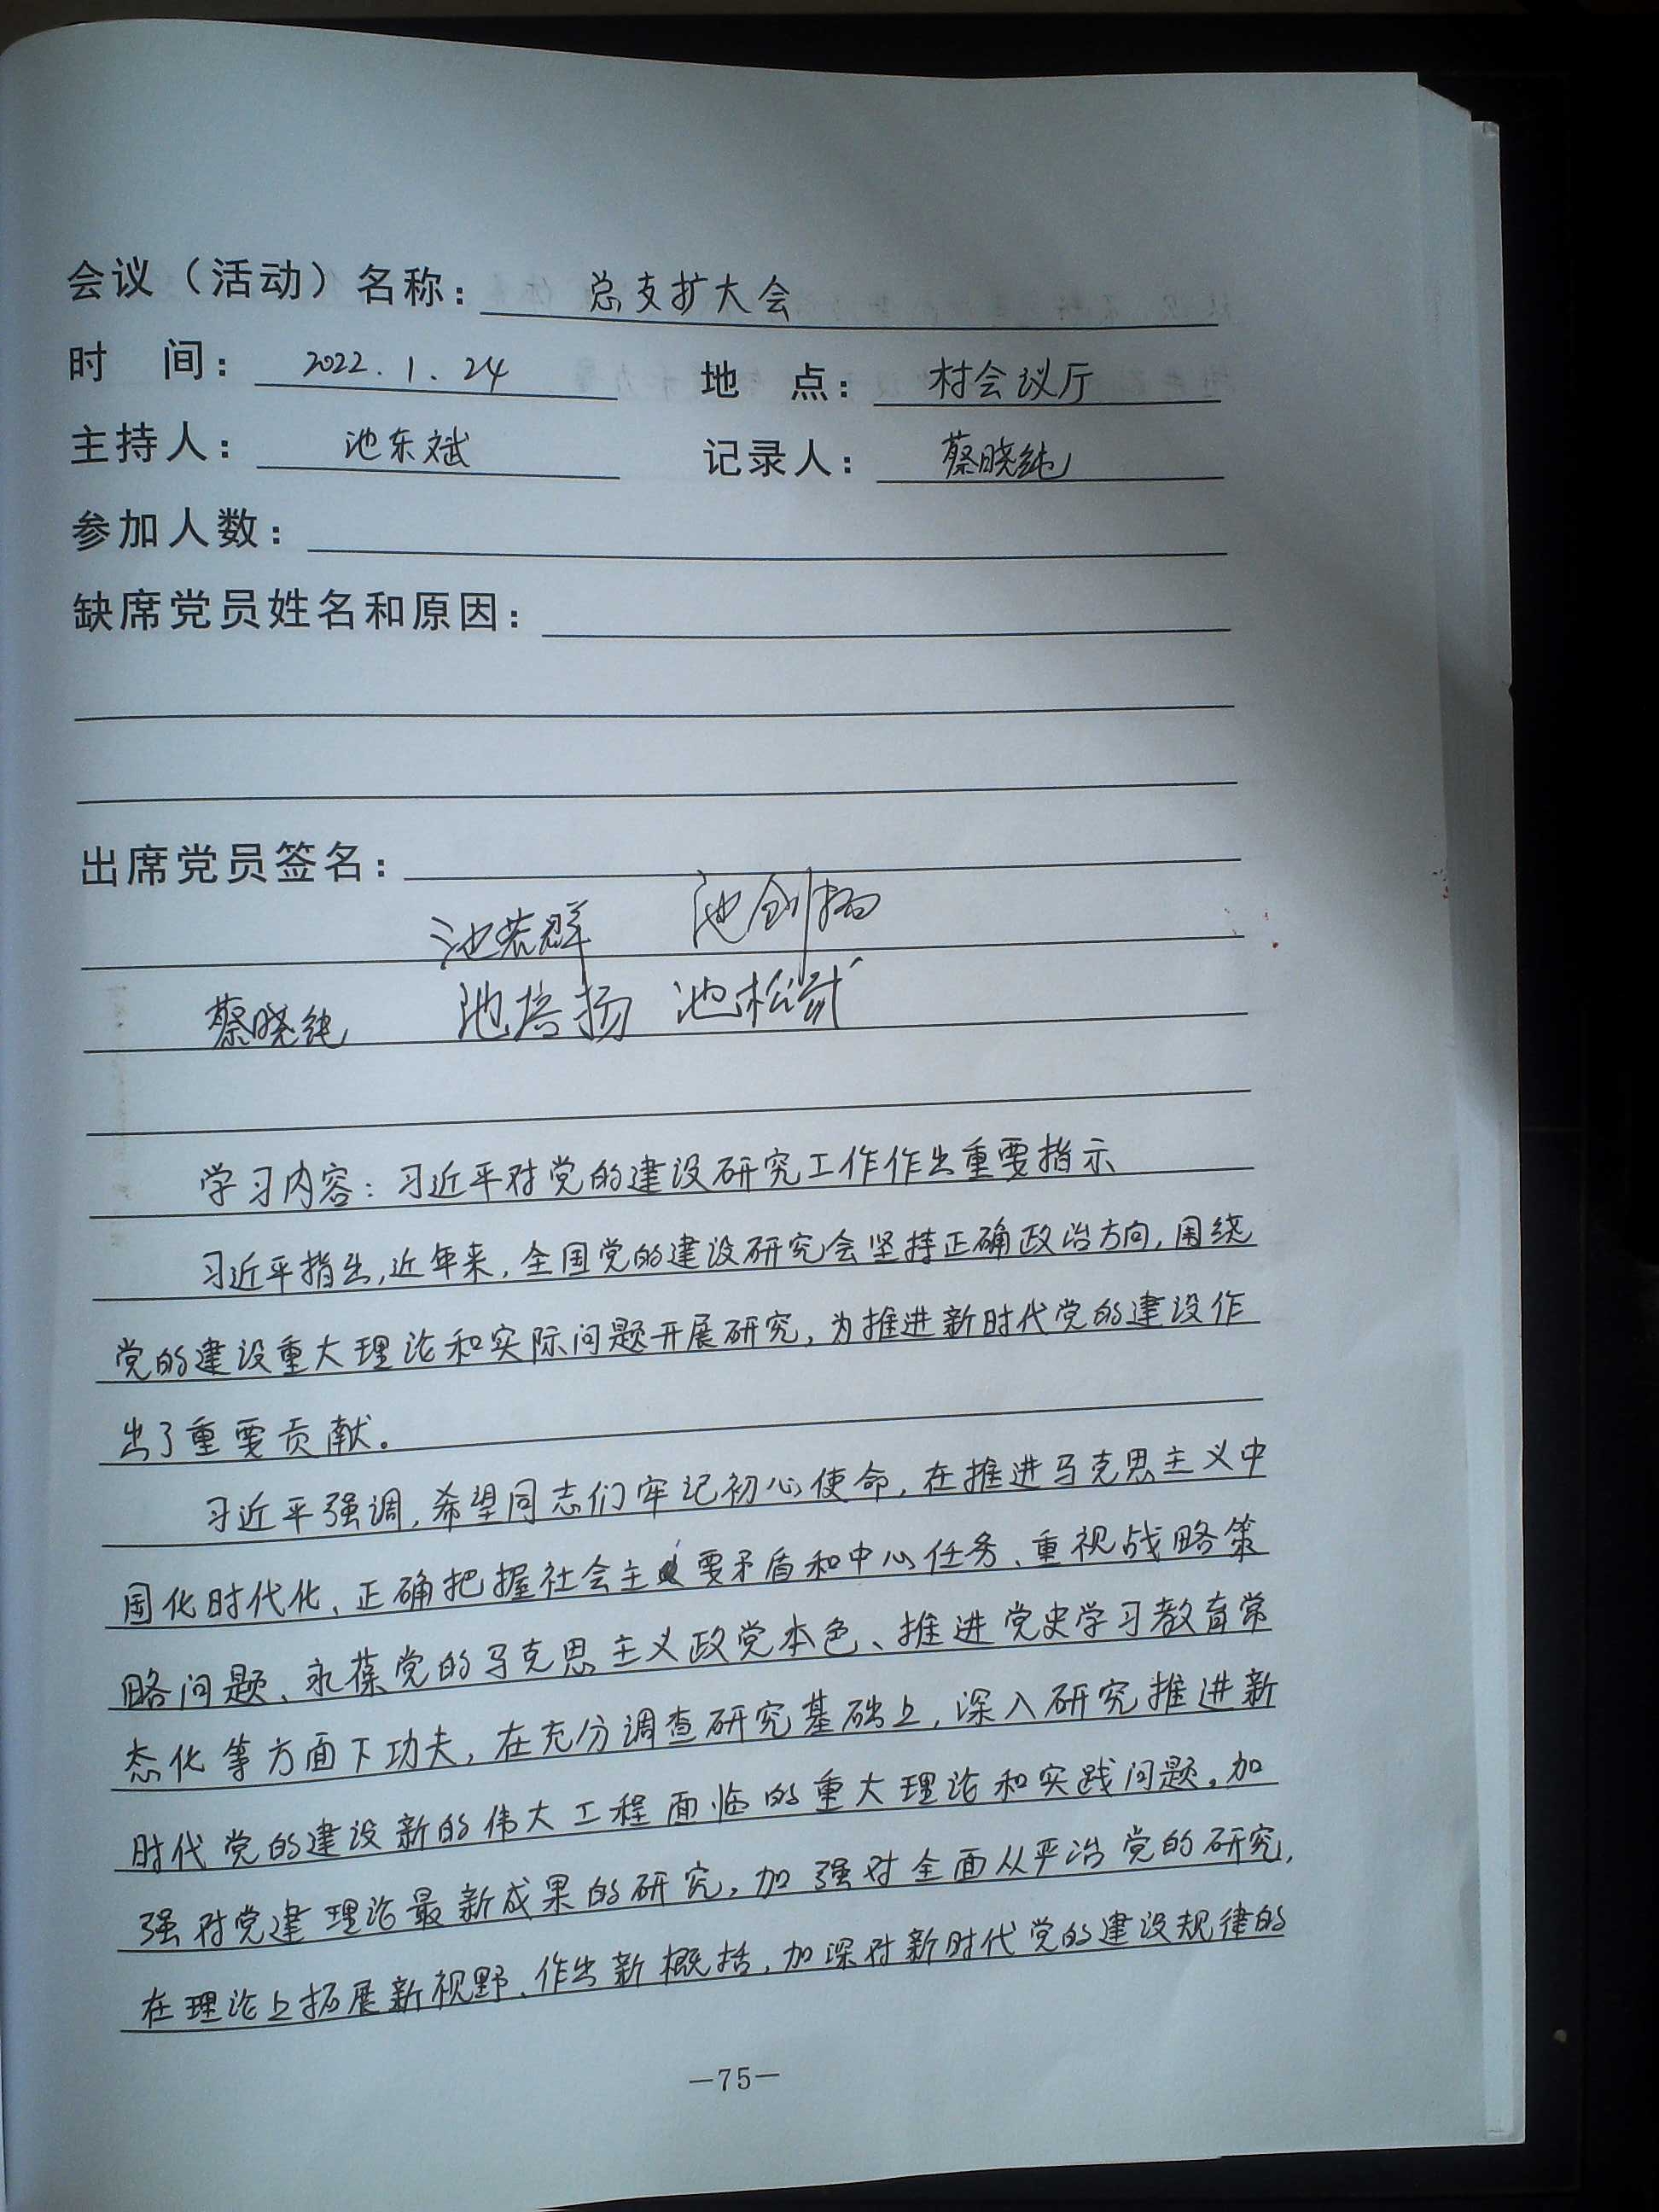 会议（活动）名称： 总支扩大会
时 间： 2022.1.24 地 点： 村会议厅
主持人： 池东斌 记录人： 蔡晓纯
参加人数：
缺席党员姓名和原因：
出席党员签名：
蔡晓纯 池培扬
学习内容：习近平对党的建设研究工作作出重要指示
习近平指出,近年来,全国党的建设研究会坚持正确政治方向,围绕
党的建设重大理论和实际问题开展研究,为推进新时代党的建设作
出了重要贡献。
习近平强调,希望同志们牢记初心使命,在推进马克思主义中
国化时代化、正确把握社会主要矛盾和中心任务、重视战略策
略问题、永葆党的马克思主义政党本色、推进党史学习教育常
态化等方面下功夫,在充分调查研究基础上,深入研究推进新
时代党的建设新的伟大工程面临的重大理论和实践问题,加
强对党建理论最新成果的研究,加强对全面从严治党的研究,
在理论上拓展新视野、作出新概括,加深对新时代党的建设规律的
—75—